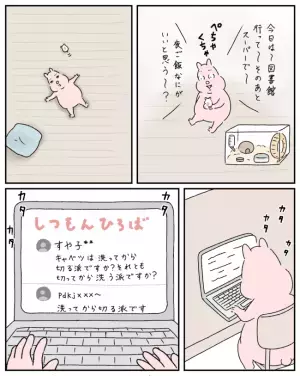 今日は〜図書館
行って〜そのあと
スーパーで〜
ぺちゃ
くちゃ
夜ご飯なにが
いいと思う〜？
カタ
カタ
カタ
カタ
しつもんひろば
すや子**
キャベツは洗ってから
切る派ですか？それとも
切ってから洗う派ですか？
pdkjxxx〜
洗ってから切る派です